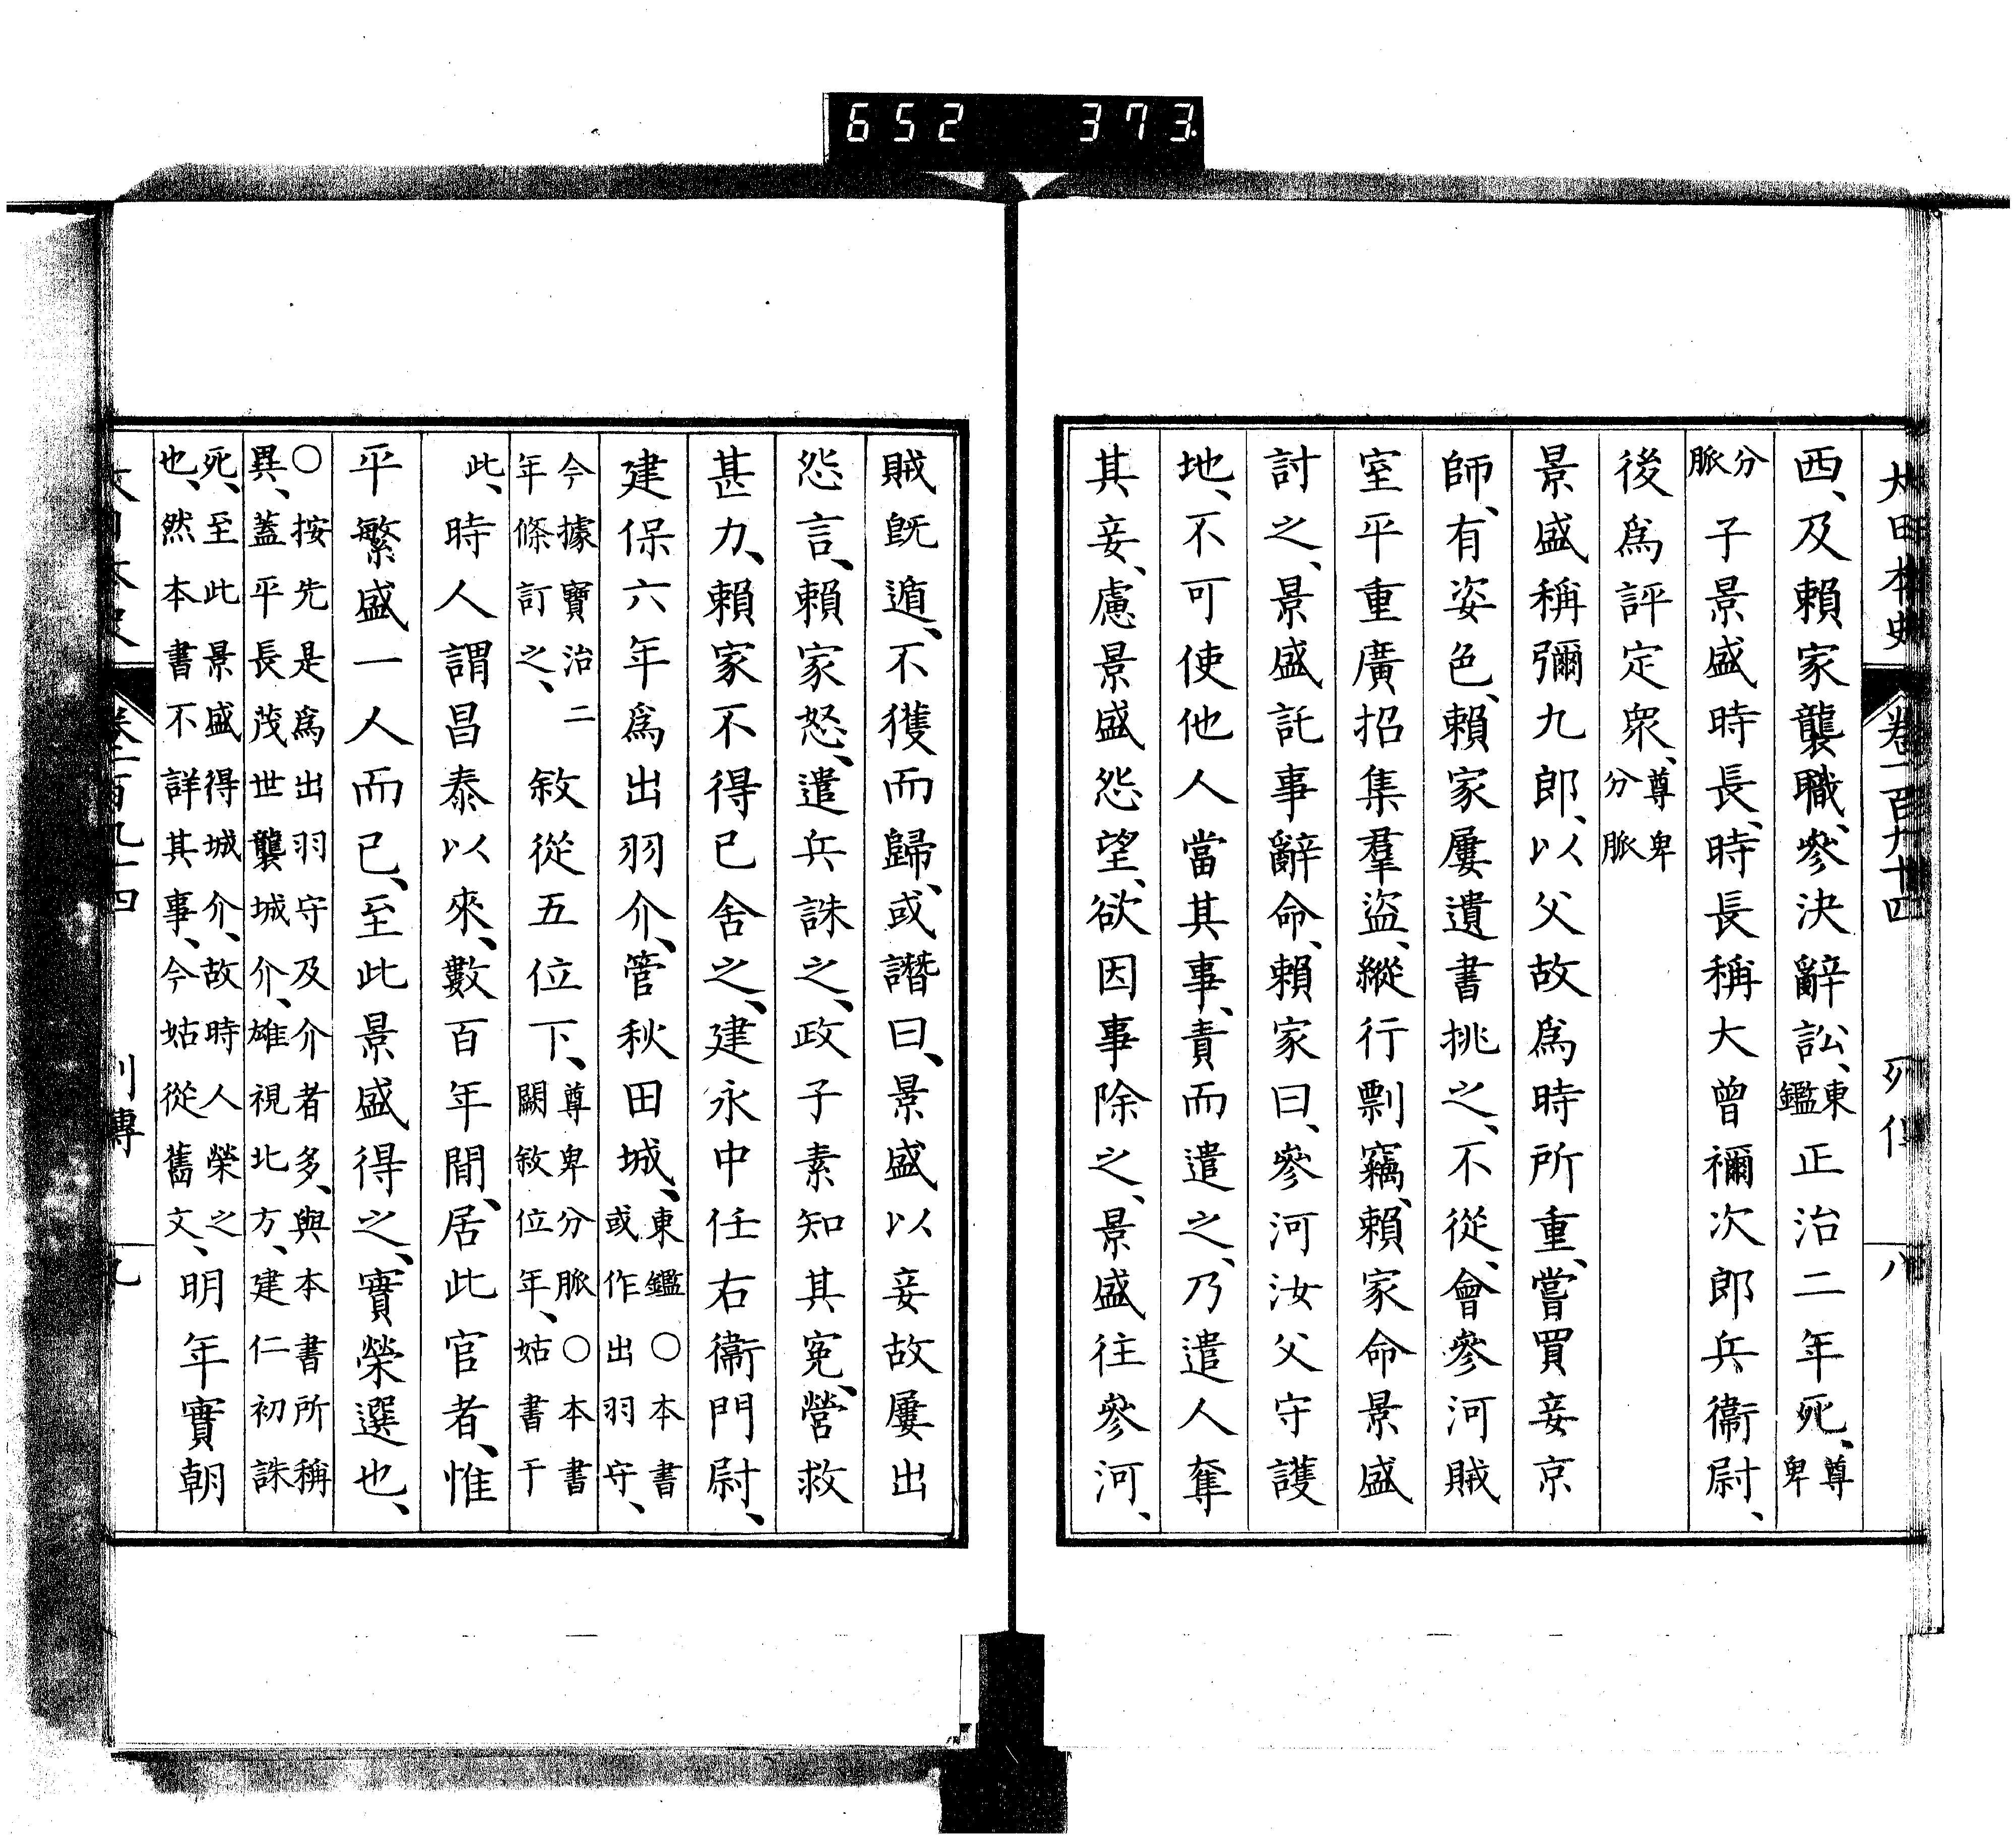 652 373
大日本史 卷一百九十四 列傳 八
西、及賴家襲職、參決辭訟、東鑑正治二年死、尊卑
分脈子景盛時長、時長稱大曾禰次郎兵衞尉、
後爲評定衆、尊卑分脈
景盛稱彌九郎、以父故爲時所重、嘗買妾京
師、有姿色、賴家屢遺書挑之、不從、會參河賊
室平重廣招集羣盜、縱行剽竊、賴家命景盛
討之、景盛託事辭命、賴家曰、參河汝父守護
地、不可使他人當其事、責而遣之、乃遣人奪
其妾、慮景盛怨望、欲因事除之、景盛往參河、
賊既遁、不獲而歸、或譖曰、景盛以妾故屢出
怨言、賴家怒、遣兵誅之、政子素知其寃、營救
甚力、賴家不得已舍之、建永中任右衞門尉、
建保六年爲出羽介、管秋田城、東鑑〇本書或作出羽守、
今據寶治二年條訂之、敘從五位下、尊卑分脈〇本書闕敘位年、姑書于
此、時人謂昌泰以來、數百年間、居此官者、惟
平繁盛一人而已、至此景盛得之、實榮選也、
〇按先是爲出羽守及介者多、與本書所稱
異、蓋平長茂世襲城介、雄視北方、建仁初誅
死、至此景盛得城介、故時人榮之
也、然本書不詳其事、今姑從舊文、明年實朝
大日本史 卷一百九十四 列傳 九